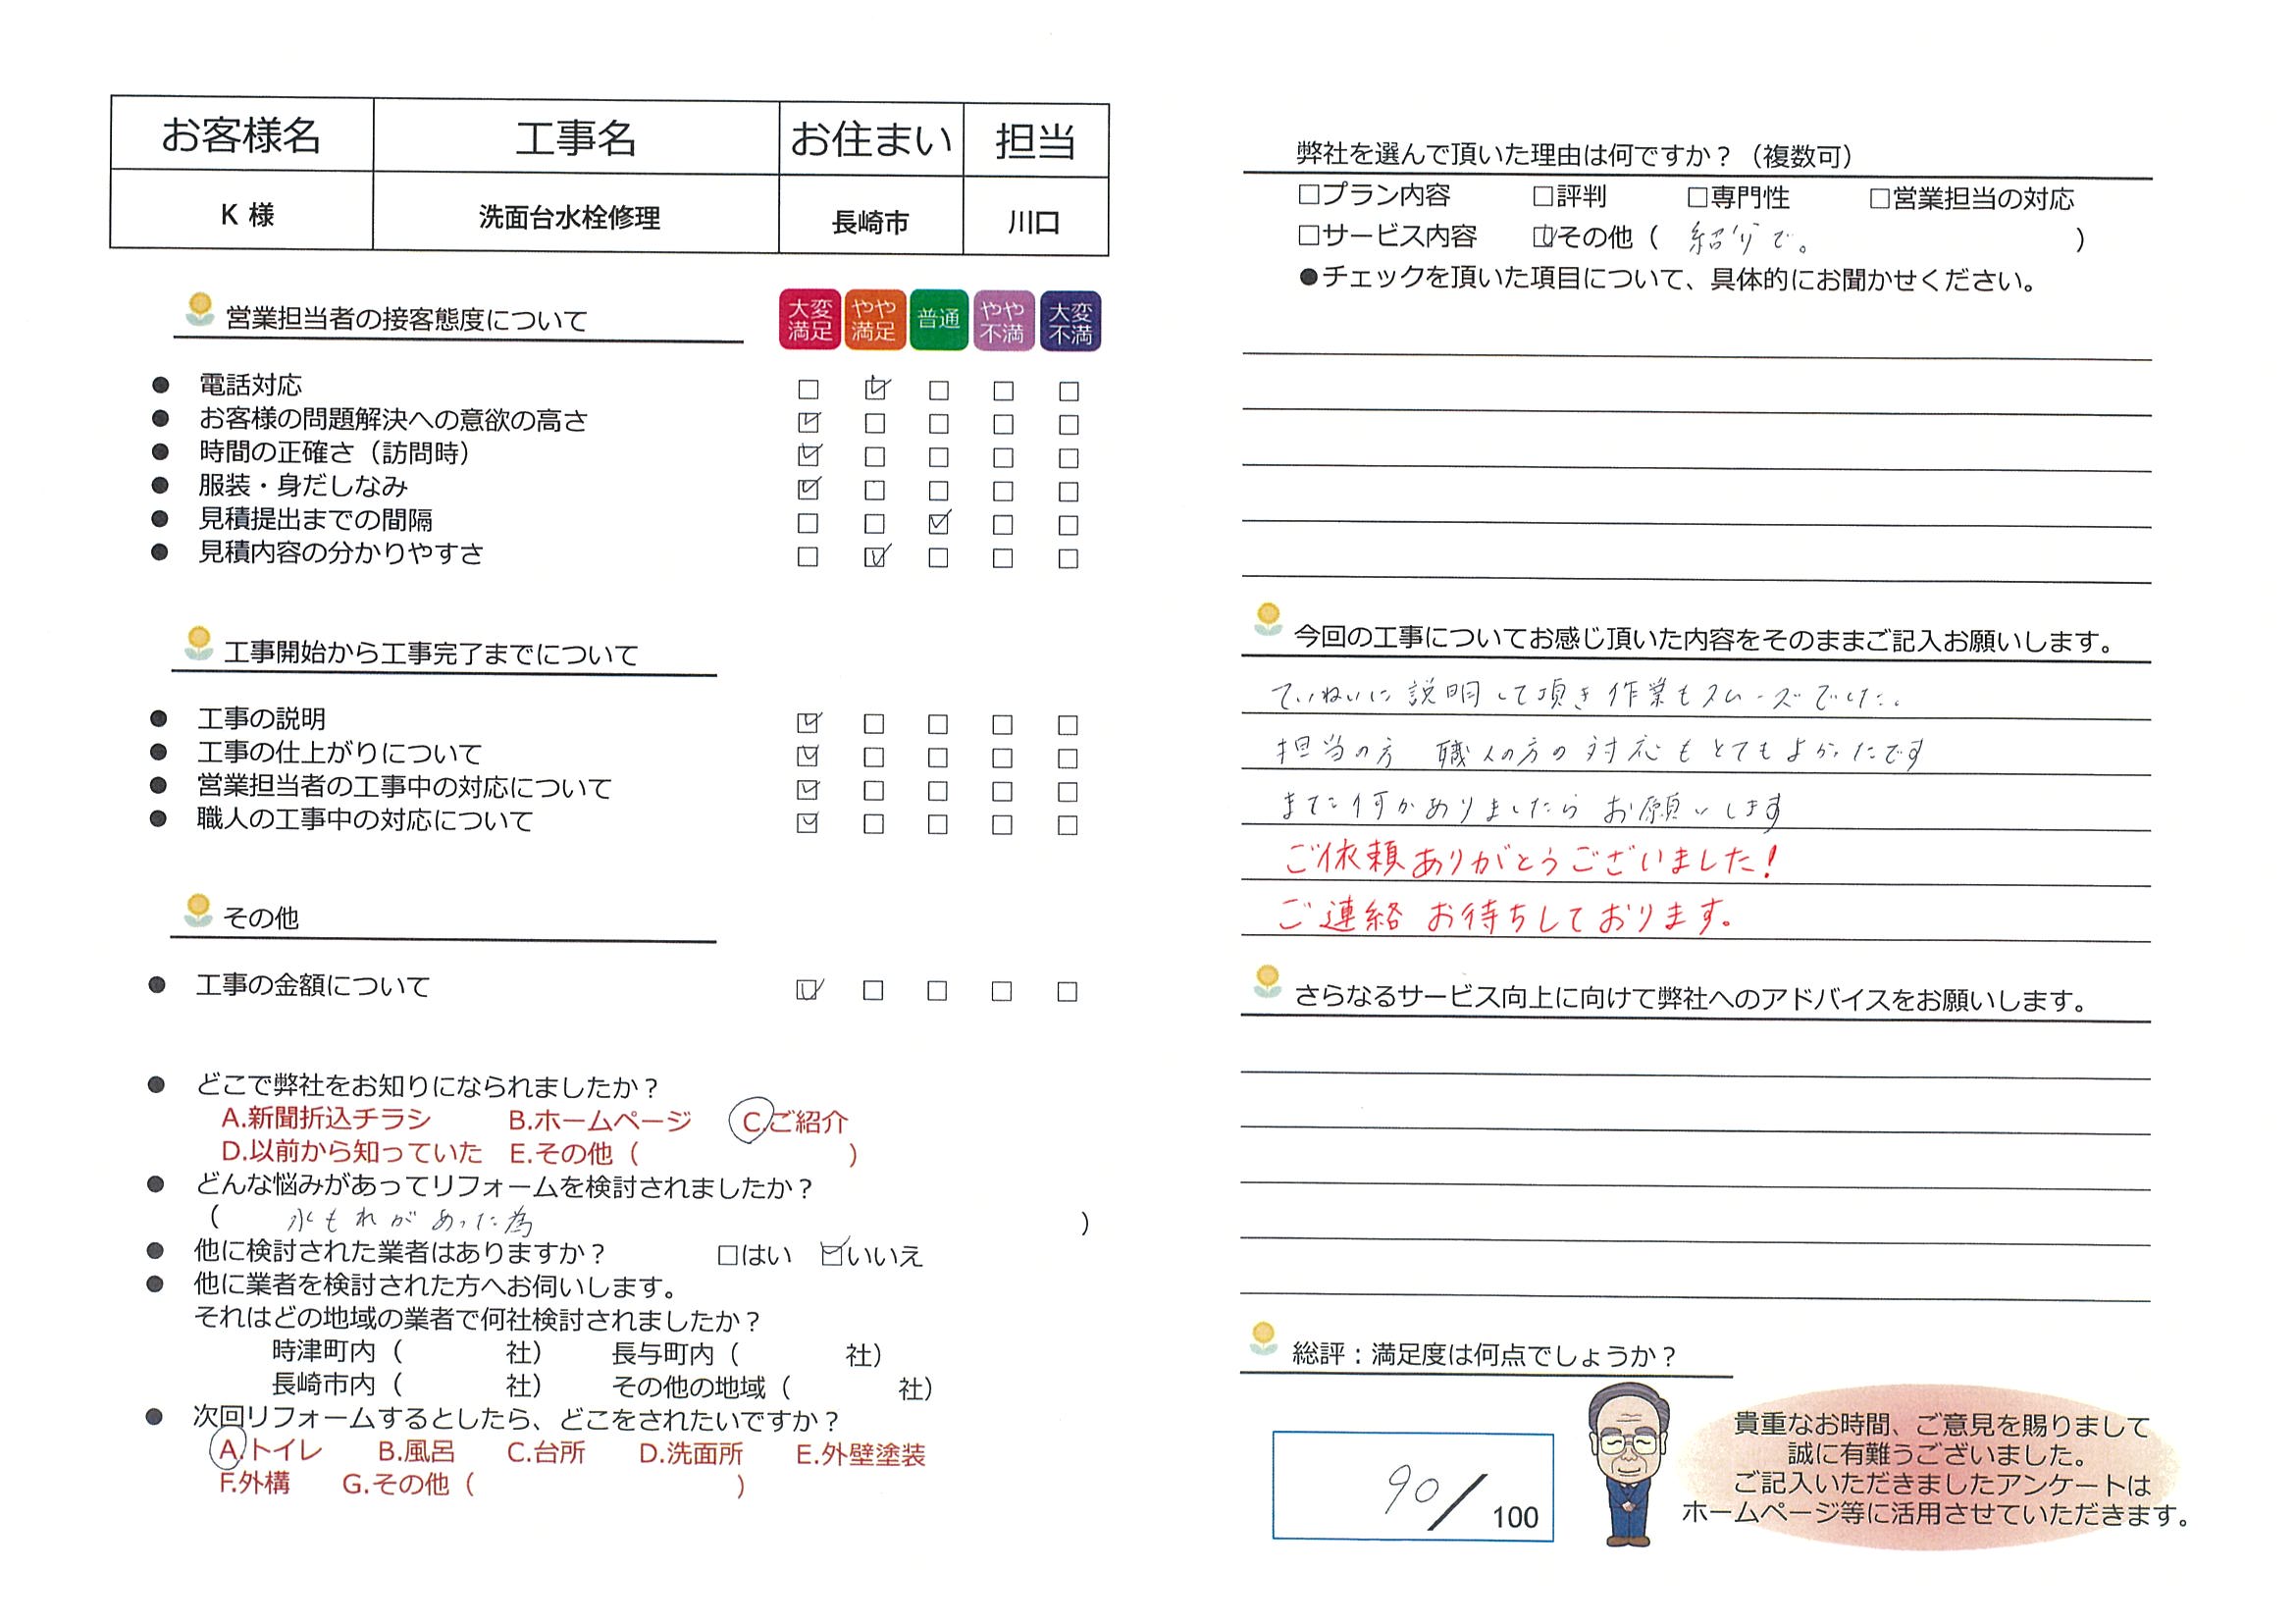 お客様名 工事名 お住まい 担当
K 様 洗面台水栓修理 長崎市 川口
営業担当者の接客態度について
大変満足 やや満足 普通 やや不満 大変不満
● 電話対応 □ ☑ □ □ □
● お客様の問題解決への意欲の高さ ☑ □ □ □ □
● 時間の正確さ（訪問時） ☑ □ □ □ □
● 服装・身だしなみ ☑ □ □ □ □
● 見積提出までの間隔 □ □ ☑ □ □
● 見積内容の分かりやすさ □ ☑ □ □ □
工事開始から工事完了までについて
● 工事の説明 ☑ □ □ □ □
● 工事の仕上がりについて ☑ □ □ □ □
● 営業担当者の工事中の対応について ☑ □ □ □ □
● 職人の工事中の対応について ☑ □ □ □ □
その他
● 工事の金額について ☑ □ □ □ □
● どこで弊社をお知りになられましたか？
A.新聞折込チラシ B.ホームページ C.ご紹介
D.以前から知っていた E.その他（ ）
● どんな悩みがあってリフォームを検討されましたか？
（ 水もれがあった為 ）
● 他に検討された業者はありますか？ □はい ☑いいえ
● 他に業者を検討された方へお伺いします。
それはどの地域の業者で何社検討されましたか？
時津町内（ 社） 長与町内（ 社）
長崎市内（ 社） その他の地域（ 社）
● 次回リフォームするとしたら、どこをされたいですか？
A.トイレ B.風呂 C.台所 D.洗面所 E.外壁塗装
F.外構 G.その他（ ）
弊社を選んで頂いた理由は何ですか？（複数可）
□プラン内容 □評判 □専門性 □営業担当の対応
□サービス内容 ☑その他（ 紹介で。 ）
●チェックを頂いた項目について、具体的にお聞かせください。
今回の工事についてお感じ頂いた内容をそのままご記入お願いします。
ていねいに説明して頂き作業もスムーズでした。
担当の方 職人の方の対応もとてもよかったです
また何かありましたらお願いします
ご依頼ありがとうございました!
ご連絡お待ちしております。
さらなるサービス向上に向けて弊社へのアドバイスをお願いします。
総評：満足度は何点でしょうか？
90/100
貴重なお時間、ご意見を賜りまして
誠に有難うございました。
ご記入いただきましたアンケートは
ホームページ等に活用させていただきます。